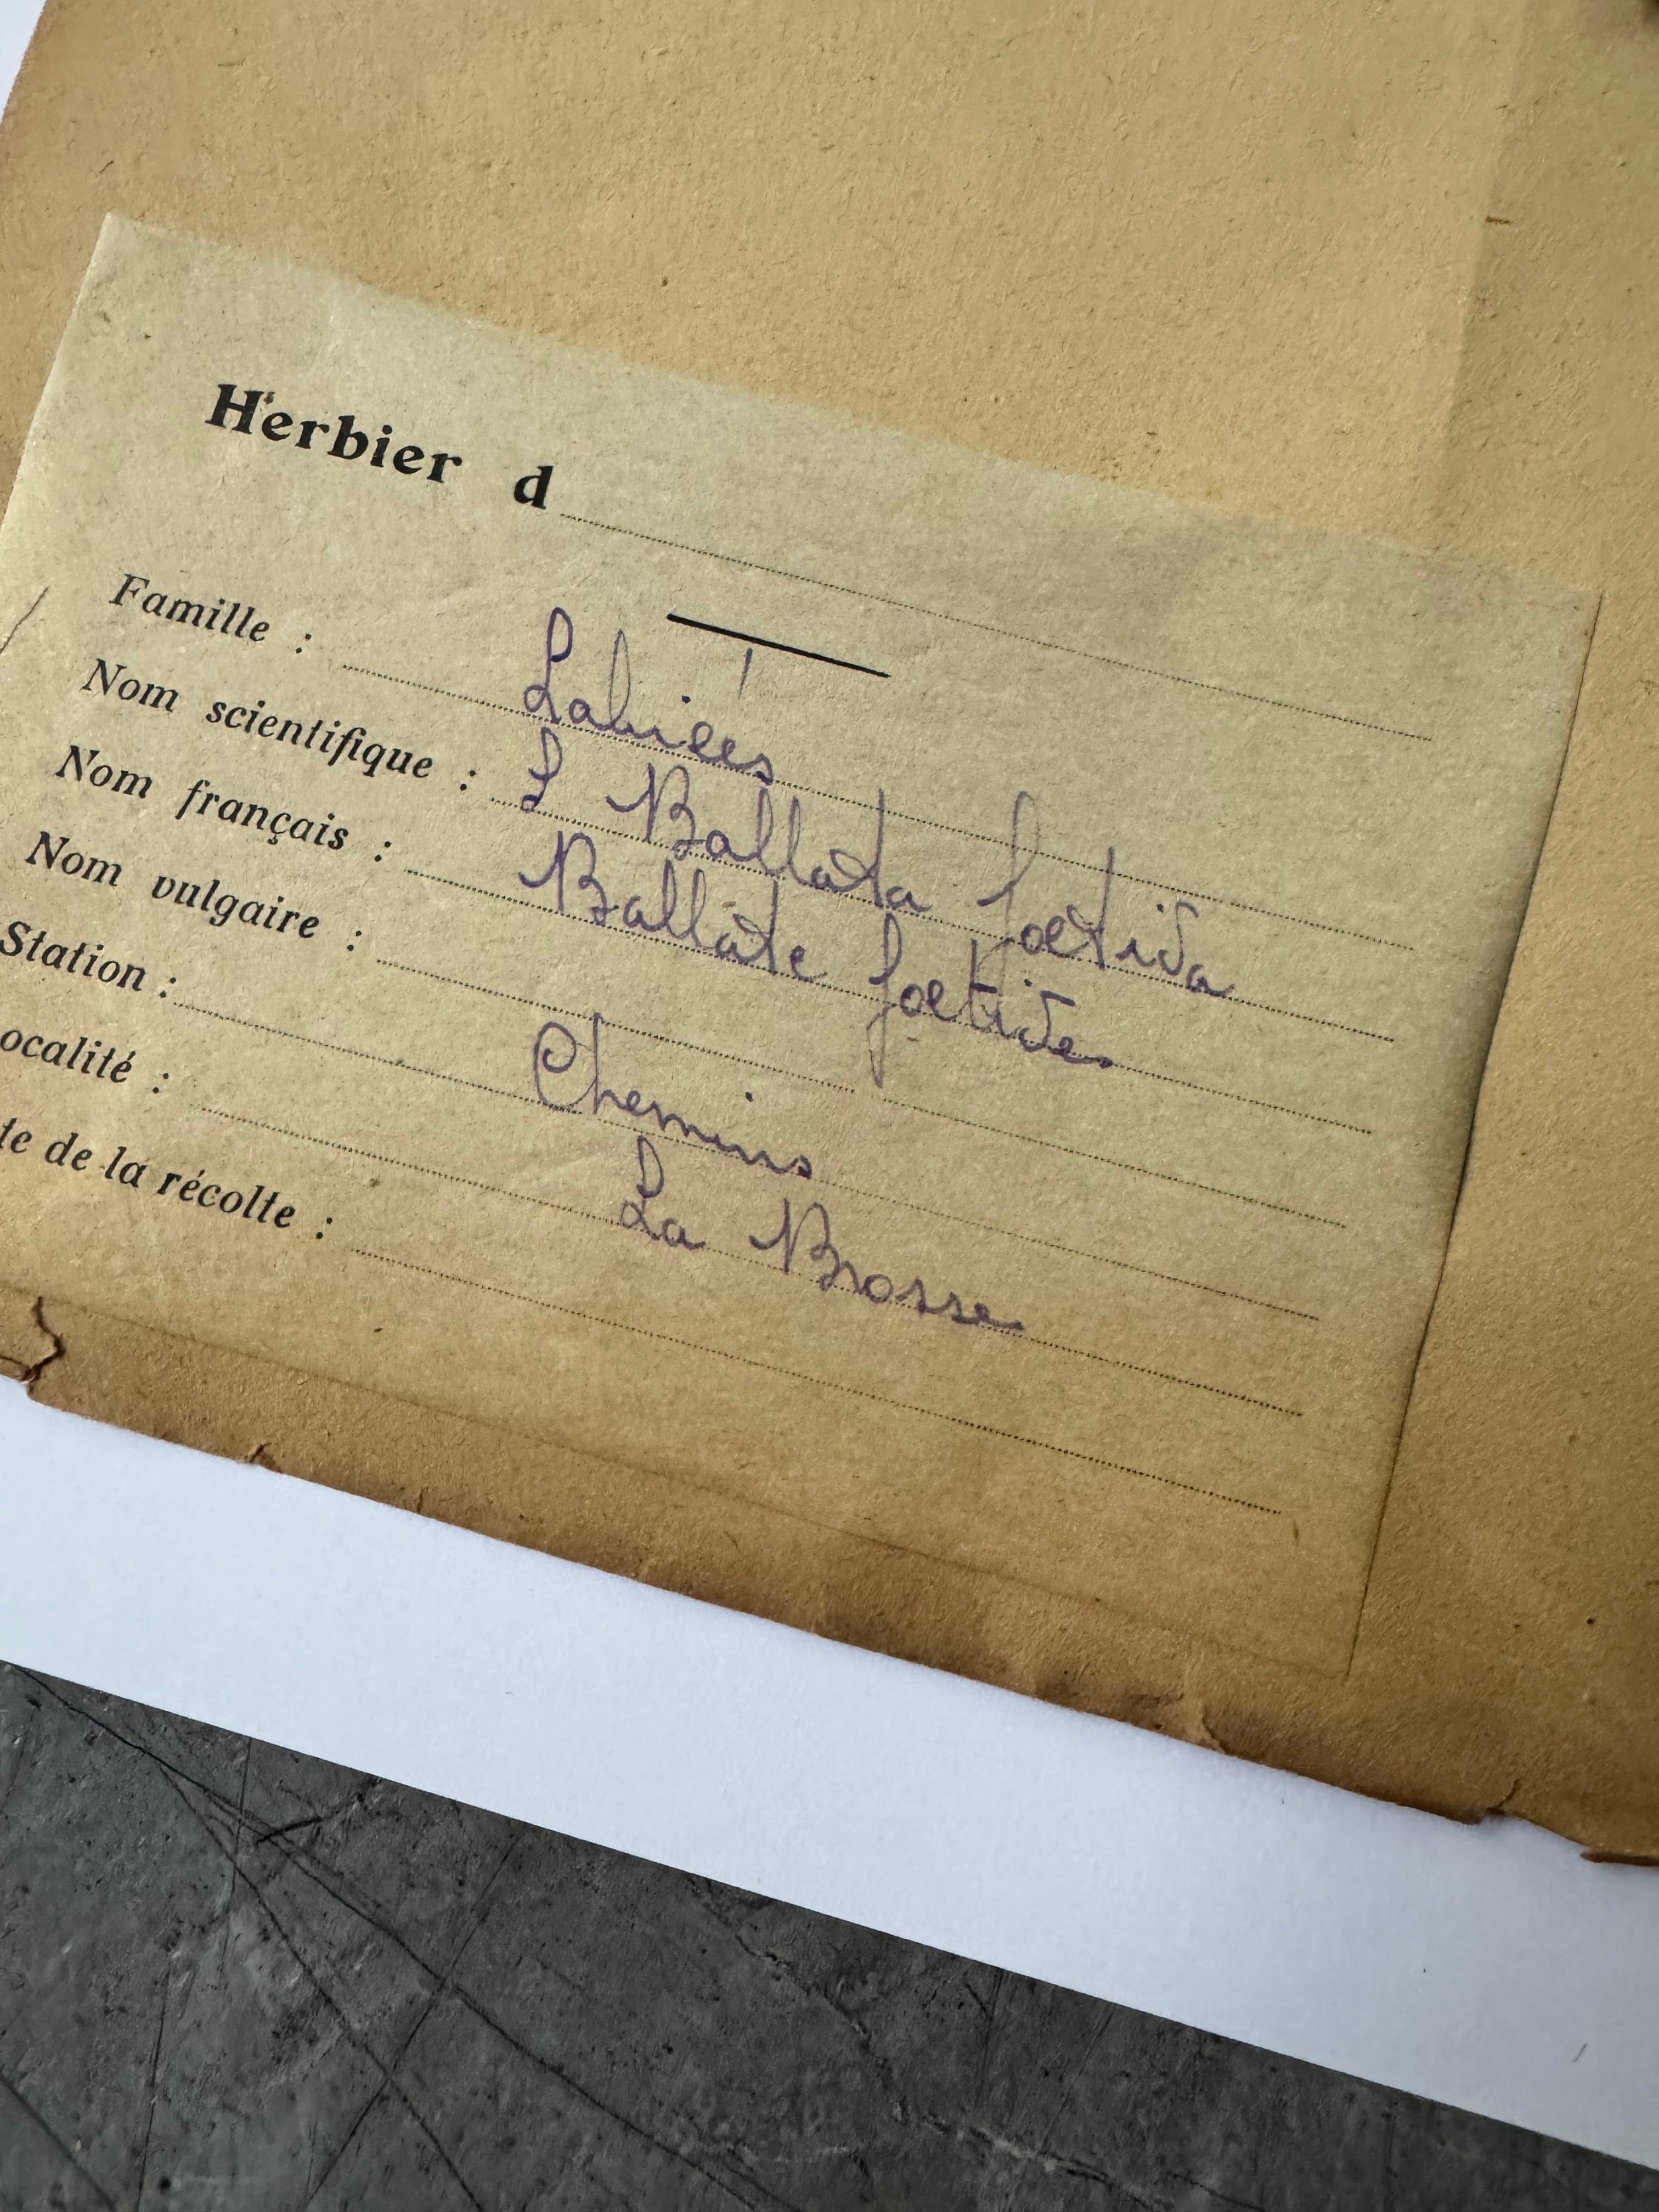 Herbier d
Famille : Labiées
Nom scientifique : L Ballata foetida
Nom français : Ballate foetide
Nom vulgaire :
Station : Chemins
ocalité : La Brosse
te de la récolte :